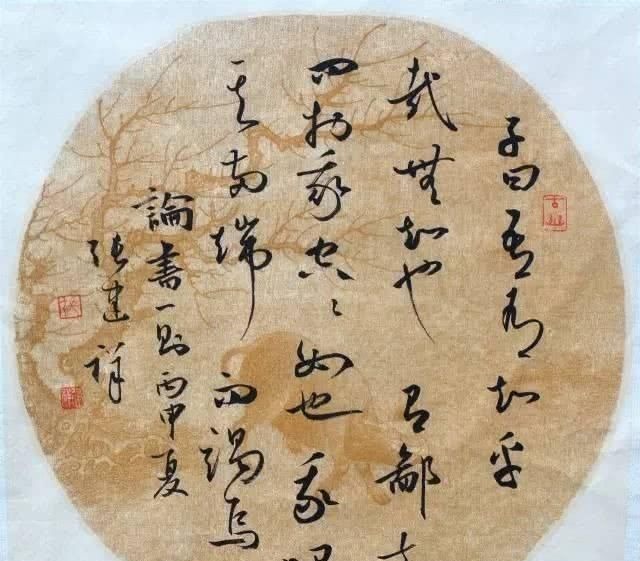 子曰吾有知乎
哉無知也有鄙
問於我空々如也我
其兩端而竭焉
論書一則丙申夏
張建祥